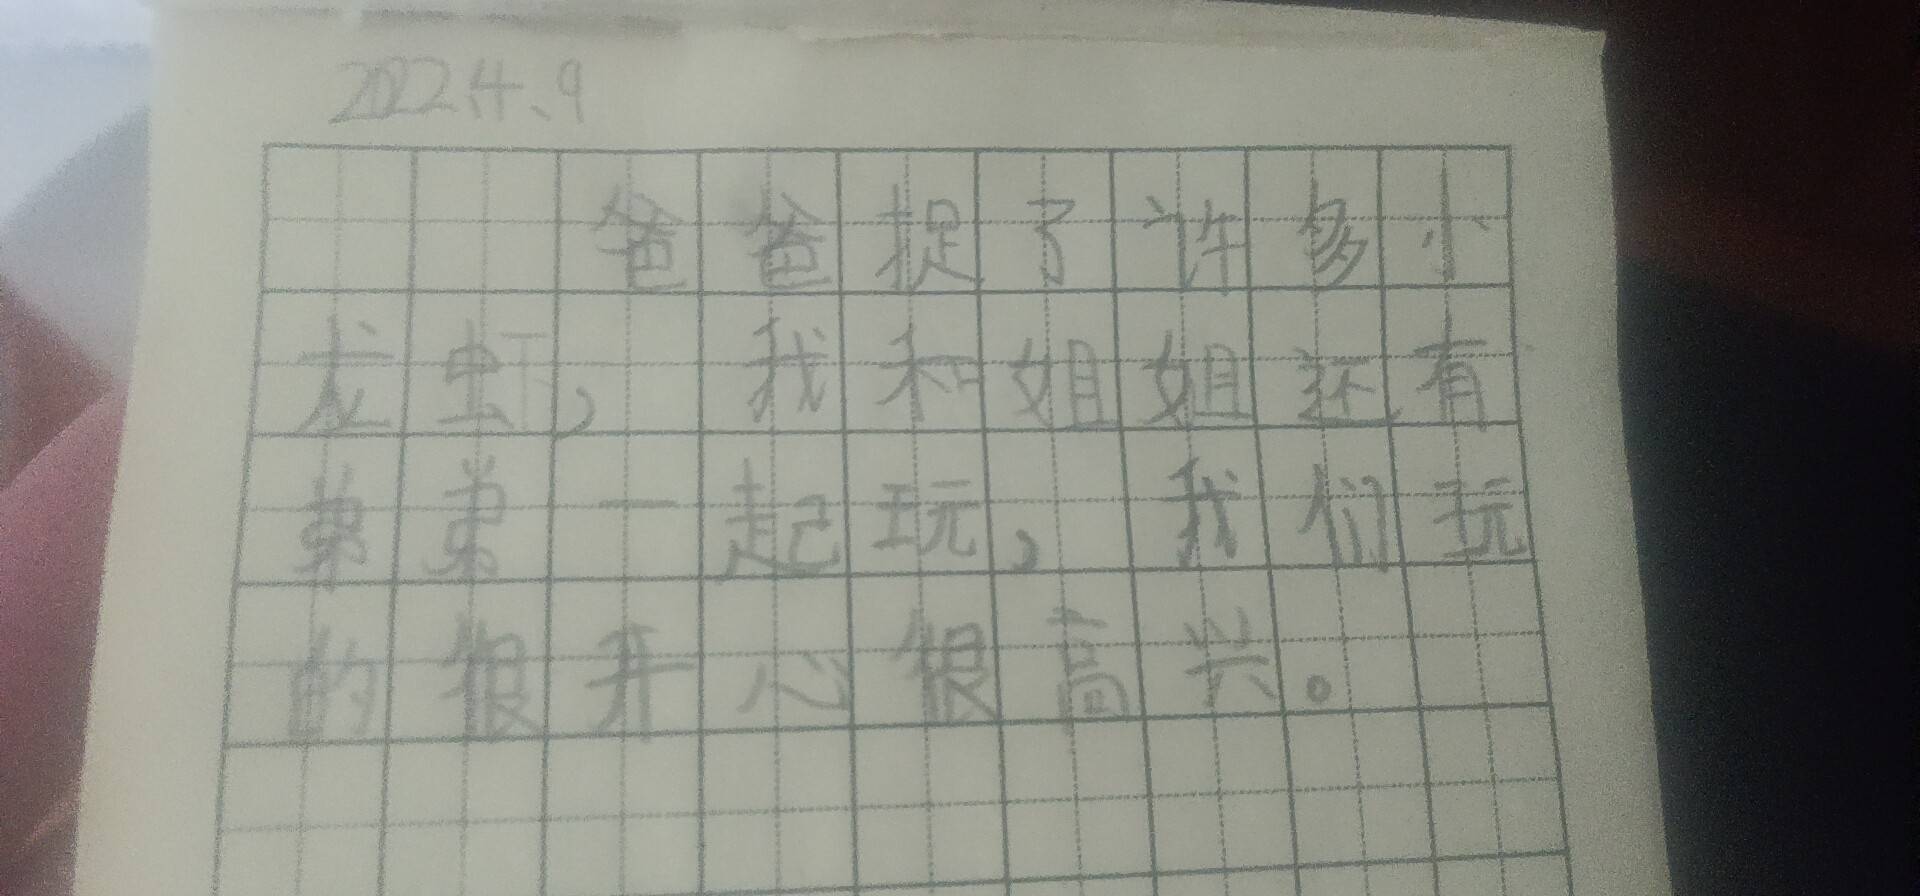 2022.4.9
爸爸捉了许多小
龙虾，我和姐姐还有
弟弟一起玩，我们玩
的很开心很高兴。